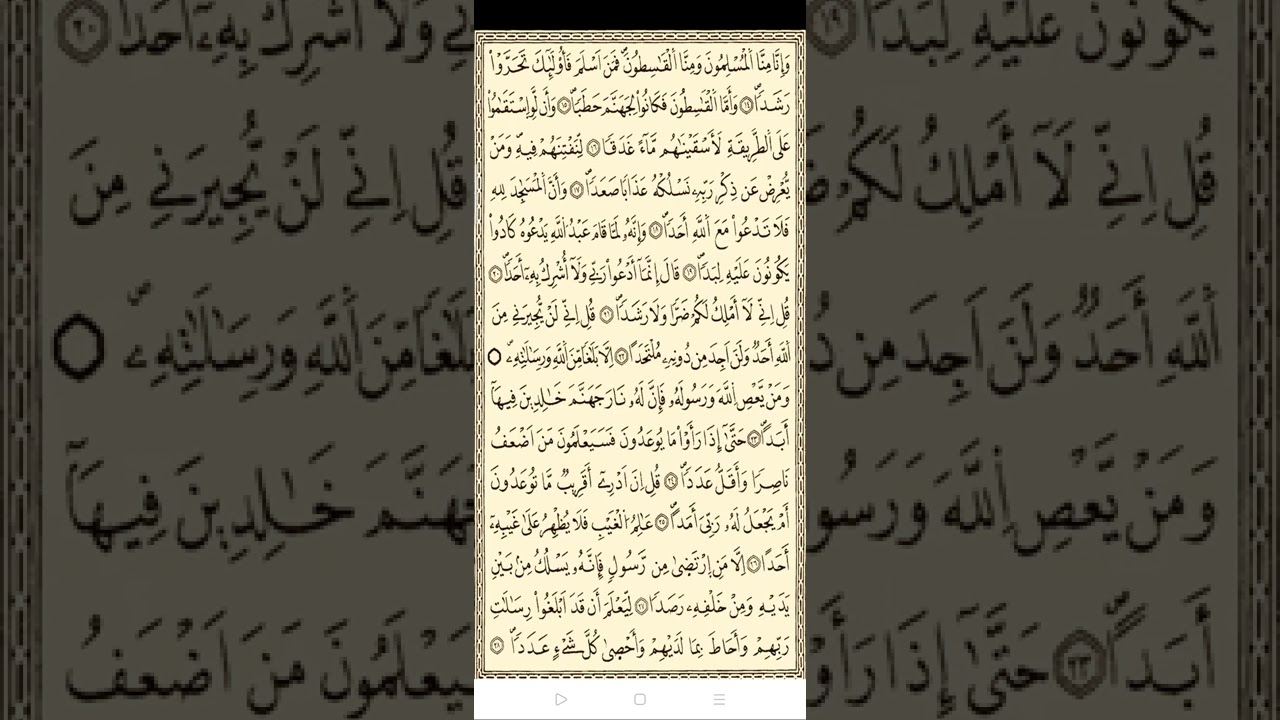 وَإِنَّا مِنَّا اَلْمُسْلِمُونَ وَمِنَّا اَلْقَٰسِطُونَۖ فَمَنَ اَسْلَمَ فَأُوْلَٰٓئِكَ تَحَرَّوْاْ
رَشَداٗۖ ١٤ وَأَمَّا اَلْقَٰسِطُونَ فَكَانُواْ لِجَهَنَّمَ حَطَباٗۖ ١٥ وَأَن لَّوِ اِسْتَقَٰمُواْ
عَلَى اَلطَّرِيقَةِ لَأَسْقَيْنَٰهُم مَّآءً غَدَقاٗ ١٦ لِّنَفْتِنَهُمْ فِيهِۖ وَمَنْ
يُّعْرِضْ عَن ذِكْرِ رَبِّهِۦ نَسْلُكْهُ عَذَاباٗ صَعَداٗۖ ١٧ وَأَنَّ اَلْمَسَٰجِدَ لِلهِ
فَلَا تَدْعُواْ مَعَ اَللَّهِ أَحَداٗۖ ١٨ وَإِنَّهُۥ لَمَّا قَامَ عَبْدُ اُللَّهِ يَدْعُوهُ كَادُواْ
يَكُونُونَ عَلَيْهِ لِبَداٗۖ ١٩ قَالَ إِنَّمَآ أَدْعُواْ رَبِّي وَلَآ أُشْرِكُ بِهِۦٓ أَحَداٗۖ ٢٠
قُلِ اِنِّي لَآ أَمْلِكُ لَكُمْ ضَرّاٗ وَلَا رَشَداٗۖ ٢١ قُلِ اِنِّي لَنْ يُّجِيرَنِي مِنَ
اَللَّهِ أَحَدٌ وَلَنَ اَجِدَ مِن دُونِهِۦ مُلْتَحَداً ٢٢ اِلَّا بَلَٰغاٗ مِّنَ اَللَّهِ وَرِسَٰلَٰتِهِۦۖ
وَمَنْ يَّعْصِ اِللَّهَ وَرَسُولَهُۥ فَإِنَّ لَهُۥ نَارَ جَهَنَّمَ خَٰلِدِينَ فِيهَآ
أَبَداٗۖ ٢٣ حَتَّىٰٓ إِذَا رَأَوْاْ مَا يُوعَدُونَ فَسَيَعْلَمُونَ مَنَ اَضْعَفُ
نَاصِراٗ وَأَقَلُّ عَدَداٗۖ ٢٤ قُلِ اِنَ اَدْرِےٓ أَقَرِيبٌ مَّا تُوعَدُونَ
أَمْ يَجْعَلُ لَهُۥ رَبِّيَ أَمَداٗۖ ٢٥ عَٰلِمُ اُلْغَيْبِ فَلَا يُظْهِرُ عَلَىٰ غَيْبِهِۦٓ
أَحَداً ٢٦ اِلَّا مَنِ اِرْتَضَىٰ مِن رَّسُولٖ فَإِنَّهُۥ يَسْلُكُ مِنْ بَيْنِ
يَدَيْهِ وَمِنْ خَلْفِهِۦ رَصَداٗ ٢٧ لِّيَعْلَمَ أَن قَدَ اَبْلَغُواْ رِسَٰلَٰتِ
رَبِّهِمْ وَأَحَاطَ بِمَا لَدَيْهِمْ وَأَحْصَىٰ كُلَّ شَےْءٍ عَدَداٗۖ ٢٨